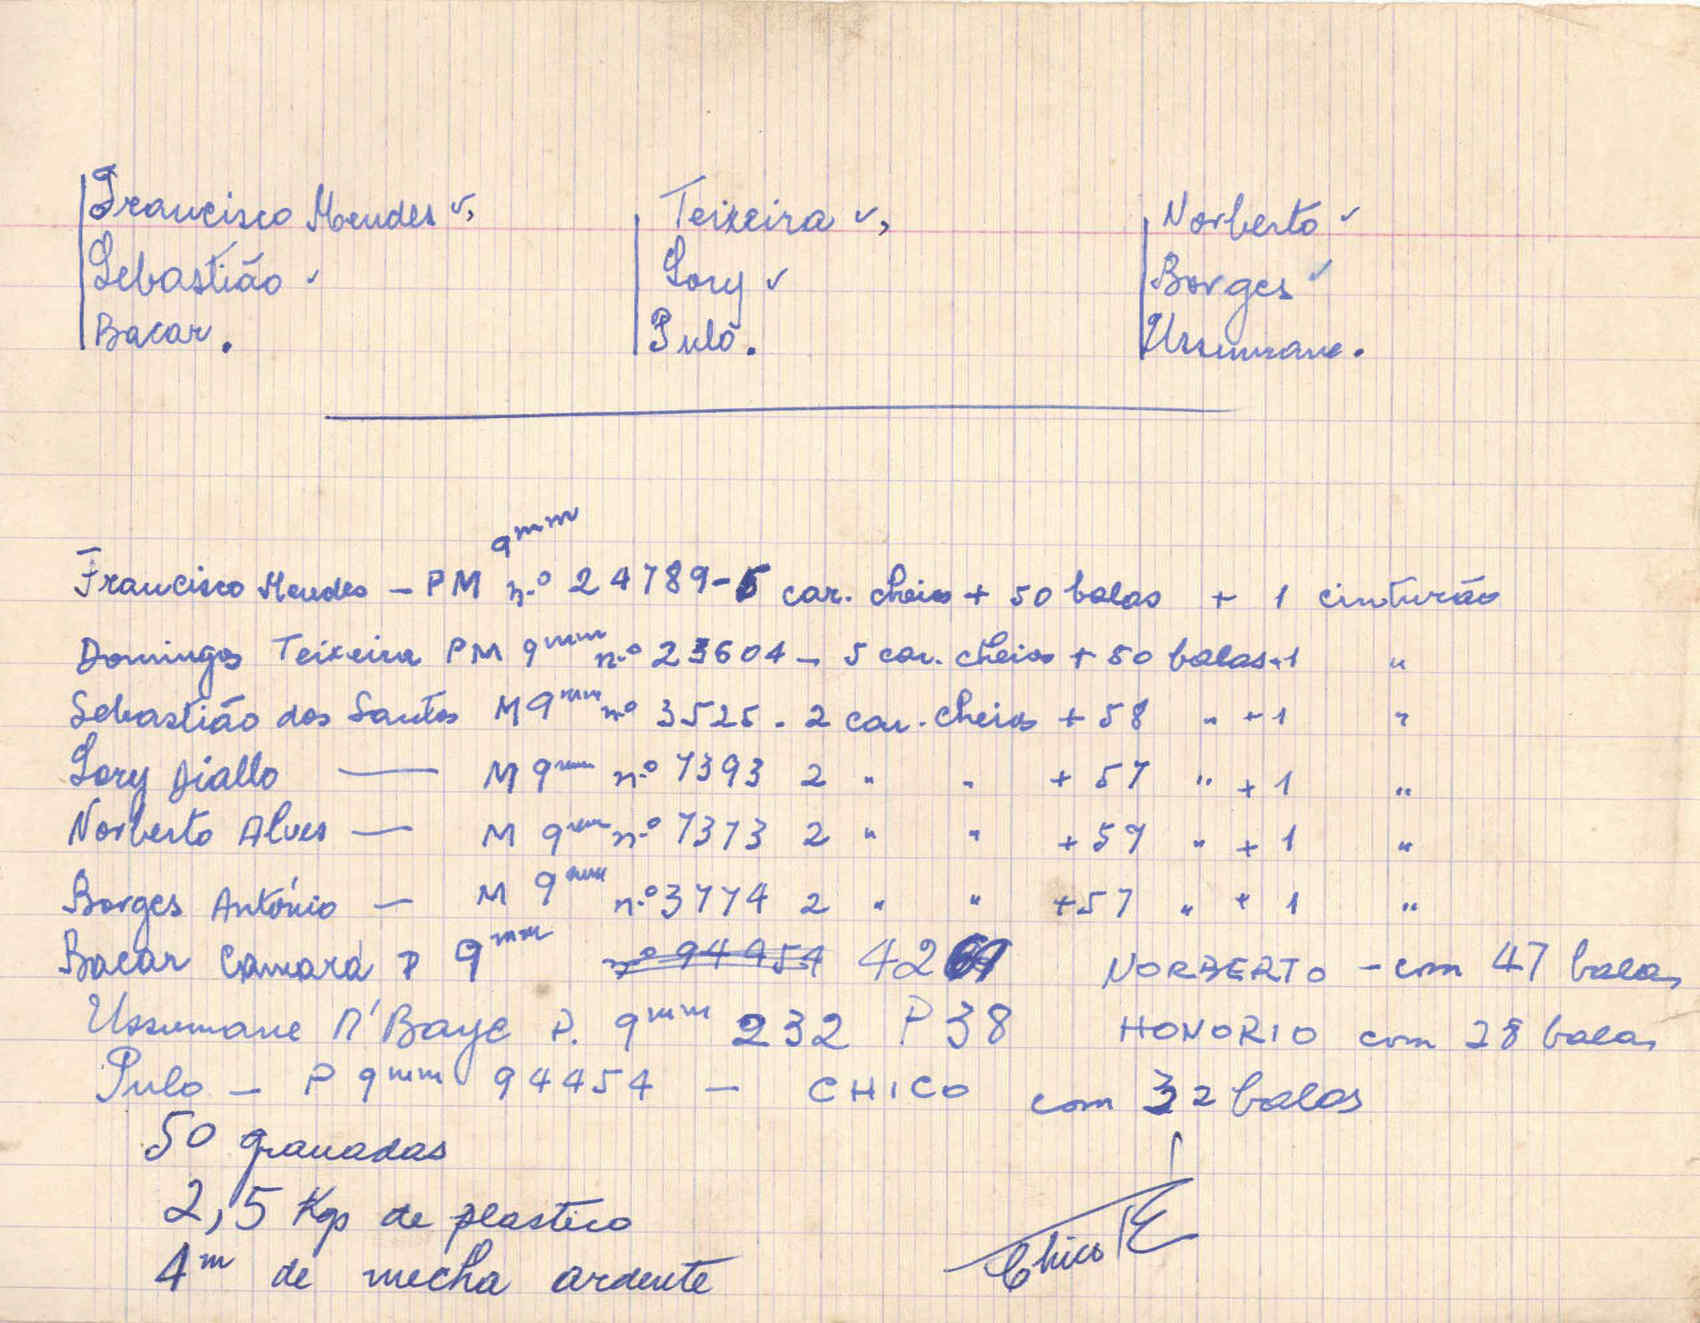 Francisco Mendes ✓, Teixeira ✓, Norberto ✓
Sebastião ✓ Lory ✓ Borges ✓
Bacar. Pulô. Ussumane.
9mm
Francisco Mendes — PM n.º 24789 - 5 car. cheios + 50 balas + 1 cinturão
Domingos Teixeira PM 9mm n.º 23604 — 5 car. cheios + 50 balas + 1 "
Sebastião dos Santos M 9mm nº 3525 - 2 car. cheios + 58 " + 1 "
Lory Diallo — M 9mm n.º 7393 2 " " + 57 " + 1 "
Norberto Alves — M 9mm n.º 7373 2 " " + 57 " + 1 "
Borges António — M 9mm n.º 3774 2 " " + 57 " + 1 "
Bacar Camará P 9mm nº 94454 42 NORBERTO - com 47 balas
Ussumane N'Baye P. 9mm 232 P38 HONORIO com 28 balas
Pulo — P 9mm 94454 — CHICO com 32 balas
50 granadas
2,5 Kgs de plastico
4m de mecha ardente
Chico